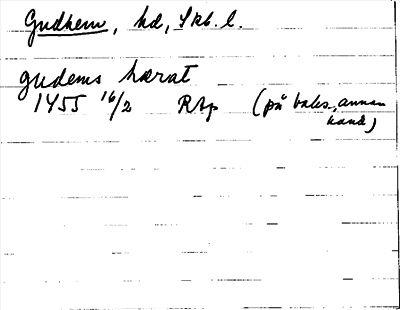 Gudhem, hd, Skb. l.
gudems hærat
1455 16/2 RAp (på baks., annan
hand)